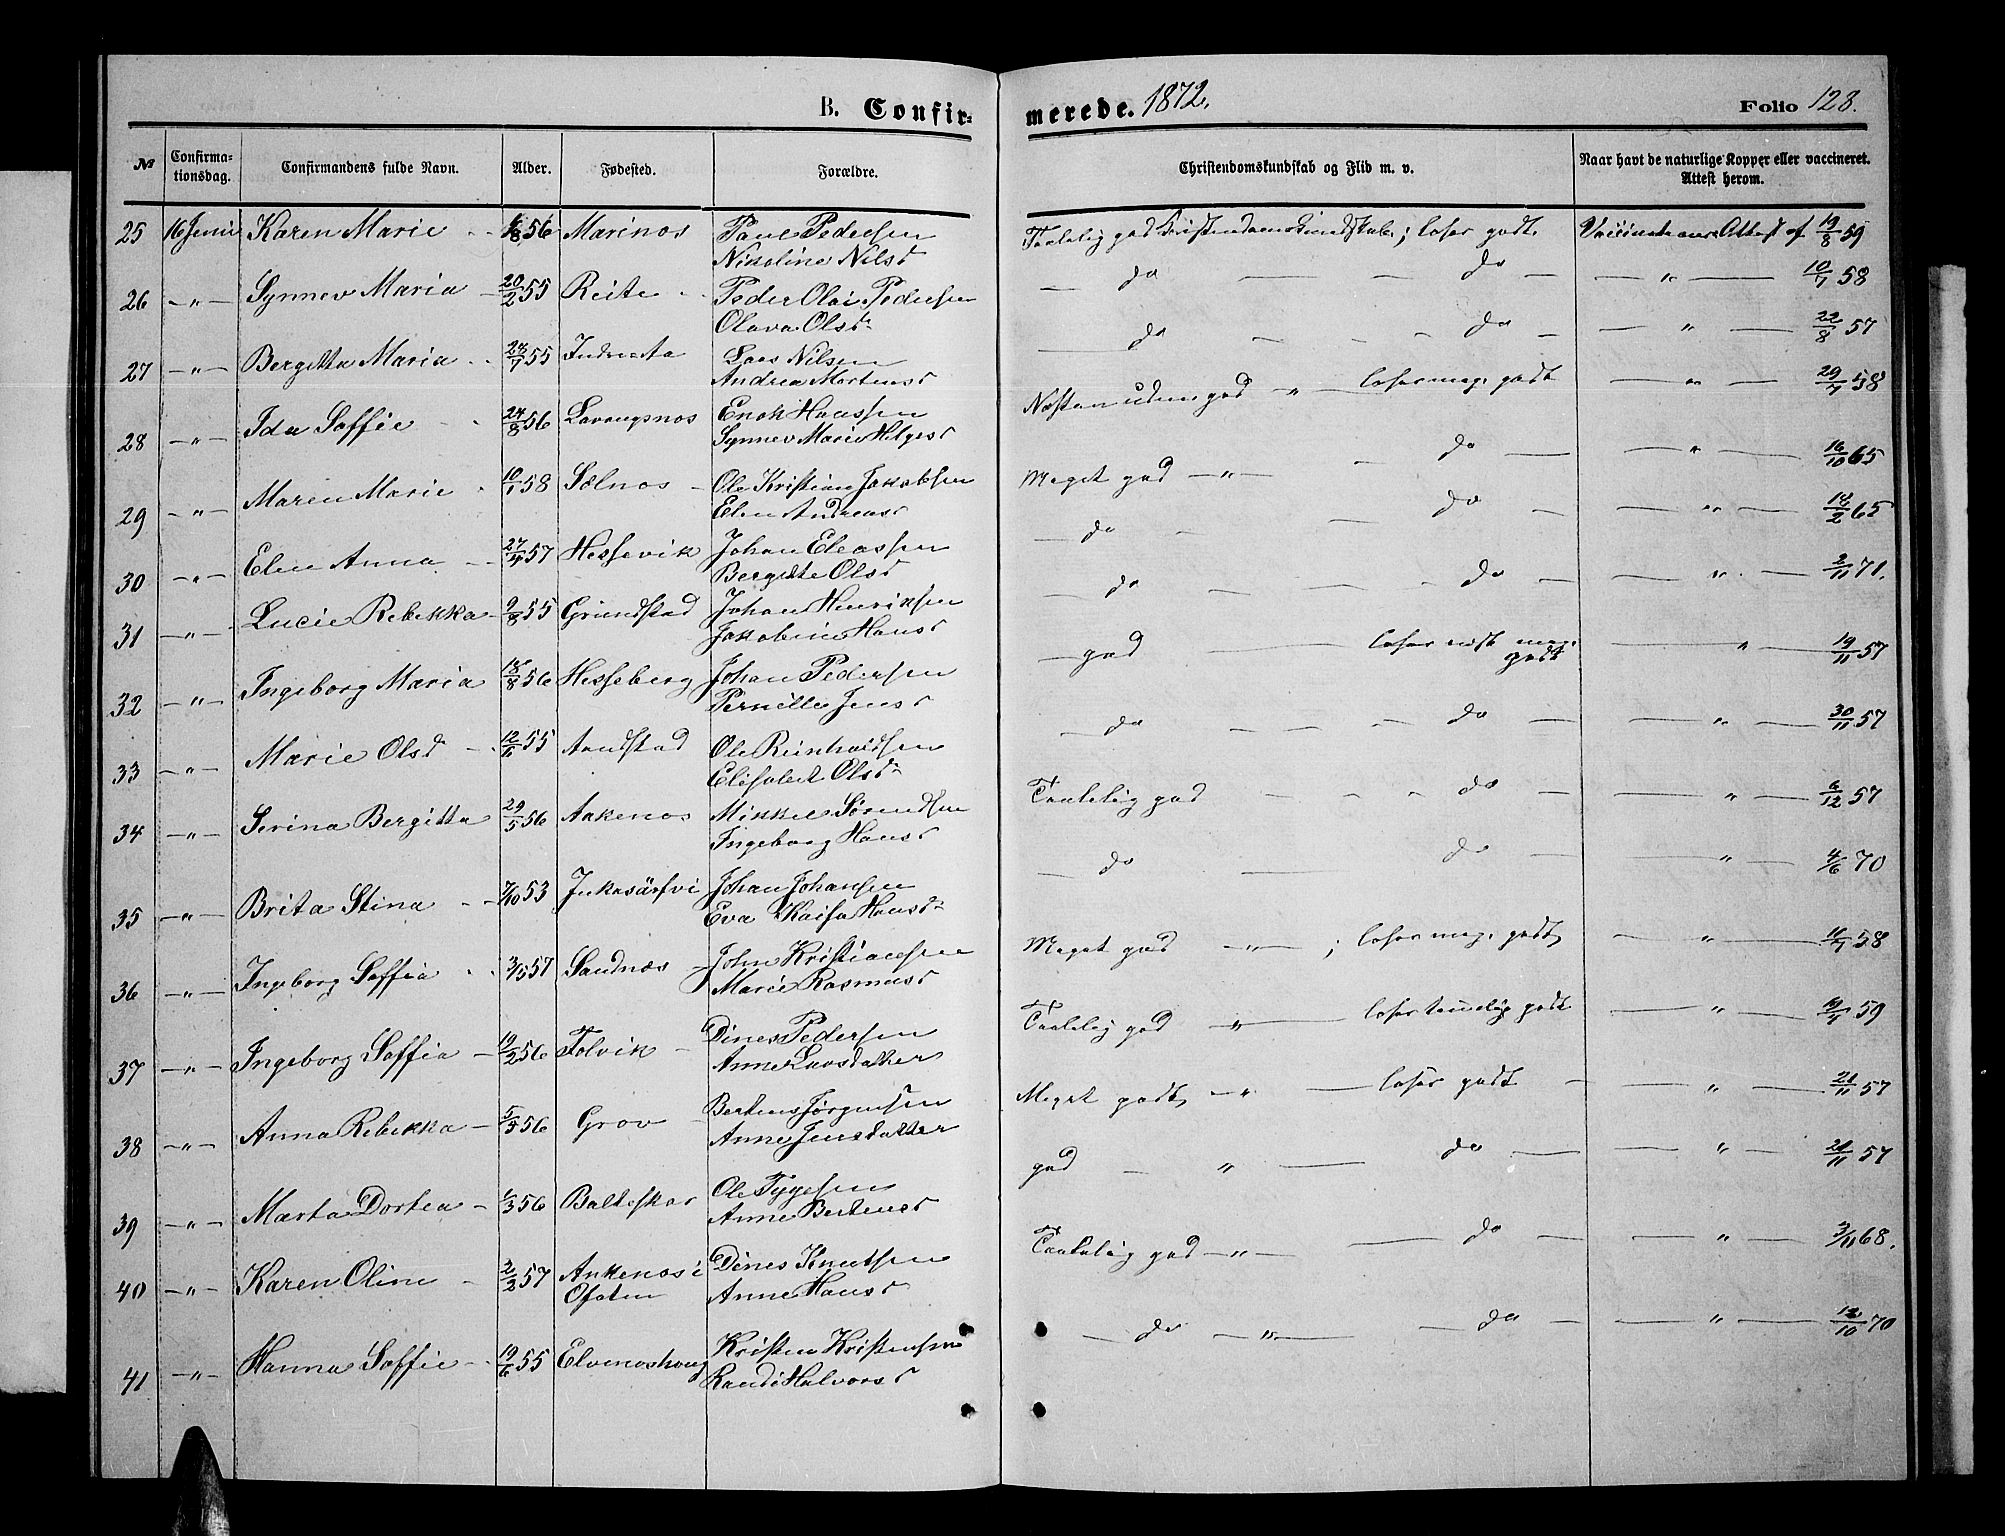 B. Confir-
merede. 1872.
Folio 128.
№
Confirma-
tionsdag.
Confirmandens fulde Navn.
Alder.
Fødested.
Forældre.
Christendomskundskab og Flid m. v.
Naar havt de naturlige Kopper eller vaccineret.
Attest herom.
25 16 Juni Karen Marie 6/8 56 Marinos Paul Pedersen
Nikoline Nilsd
Taalelig god Kristendomskundskab; læser godt. Vaccinationsattest af 19/8 59
26 —„— Synnev Maria 20/2 55 Reite Peder Olai Pedersen
Olava Olsd
— do — — do — — „ — 10/7 58
27 —„— Bergitta Maria 28/7 55 Indre Aa Lars Nilsen
Andrea Mortensd
— do — — do — — „ — 22/8 57
28 —„— Ida Soffie 24/8 56 Lavangsnos Enok Hansen
Synnev Marie Helgesd
Næsten uden god — „ — læser meg. godt — „ — 29/7 58
29 —„— Maren Marie 16/1 58 Sælnos Ole Kristian Jakobsen
Elen Andreasd
Meget god —„— — do — — „ — 16/10 65
30 —„— Elen Anna 27/4 57 Hessevik Johan Eleassen
Bergitte Olsd
— do — — do — — „ — 18/2 65
31 —„— Lucie Rebekka 9/8 55 Grundstad Johan Henriksen
Jakobine Hansd
— do — — do — — „ — 2/11 71.
32 —„— Ingeborg Maria 18/8 56 Hesseberg Johan Pedersen
Pernille Jensd
— god — læser nest meg. godt — „ — 19/11 57
33 —„— Marie Olsd 12/11 55 Aandstad Ole Reinholdsen
Elisabet Olsd
— do — — do — — „ — 30/11 57
34 —„— Serina Bergitta 29/5 56 Aakenos Mikkel Sørendsen
Ingeborg Hansd
Taalelig god — — do — — „ — 6/12 57
35 —„— Brita Stina 7/10 53 Jukasärfvi Johan Johansen
Eva Kaisa Hansd
— do — — do — — „ — 4/6 70
36 —„— Ingeborg Soffia 3/5 57 Sandnæs John Kristiansen
Marie Rasmusd
Meget god —„— ; læser meg. godt — „ — 11/7 58
37 —„— Ingeborg Soffia 19/2 56 Folvik Dines Pedersen
Anne Larsdatter
Taalelig god „ — læser temelig godt — „ — 19/7 59
38 —„— Anna Rebekka 5/5 56 Grov Berteus Jørgensen
Anne Jensdatter
Meget godt —„— læser godt — — „ — 21/11 57
39 —„— Marta Dortea 1/3 56 Balteskar Ole Tygesen
Anne Berteusd
god — „ — do — — „ — 21/11 57
40 —„— Karen Oline 2/2 57 Ankenos i
Ofoten
Dines Knutsen
Anne Hansd
Taalelig god —„— — do — — „ — 3/11 68.
41 —„— Hanna Soffie 19/6 55 Elvenoshaug Kristen Kristensen
Randi Halvorsd
— do — „ — — do — — „ — 12/10 70